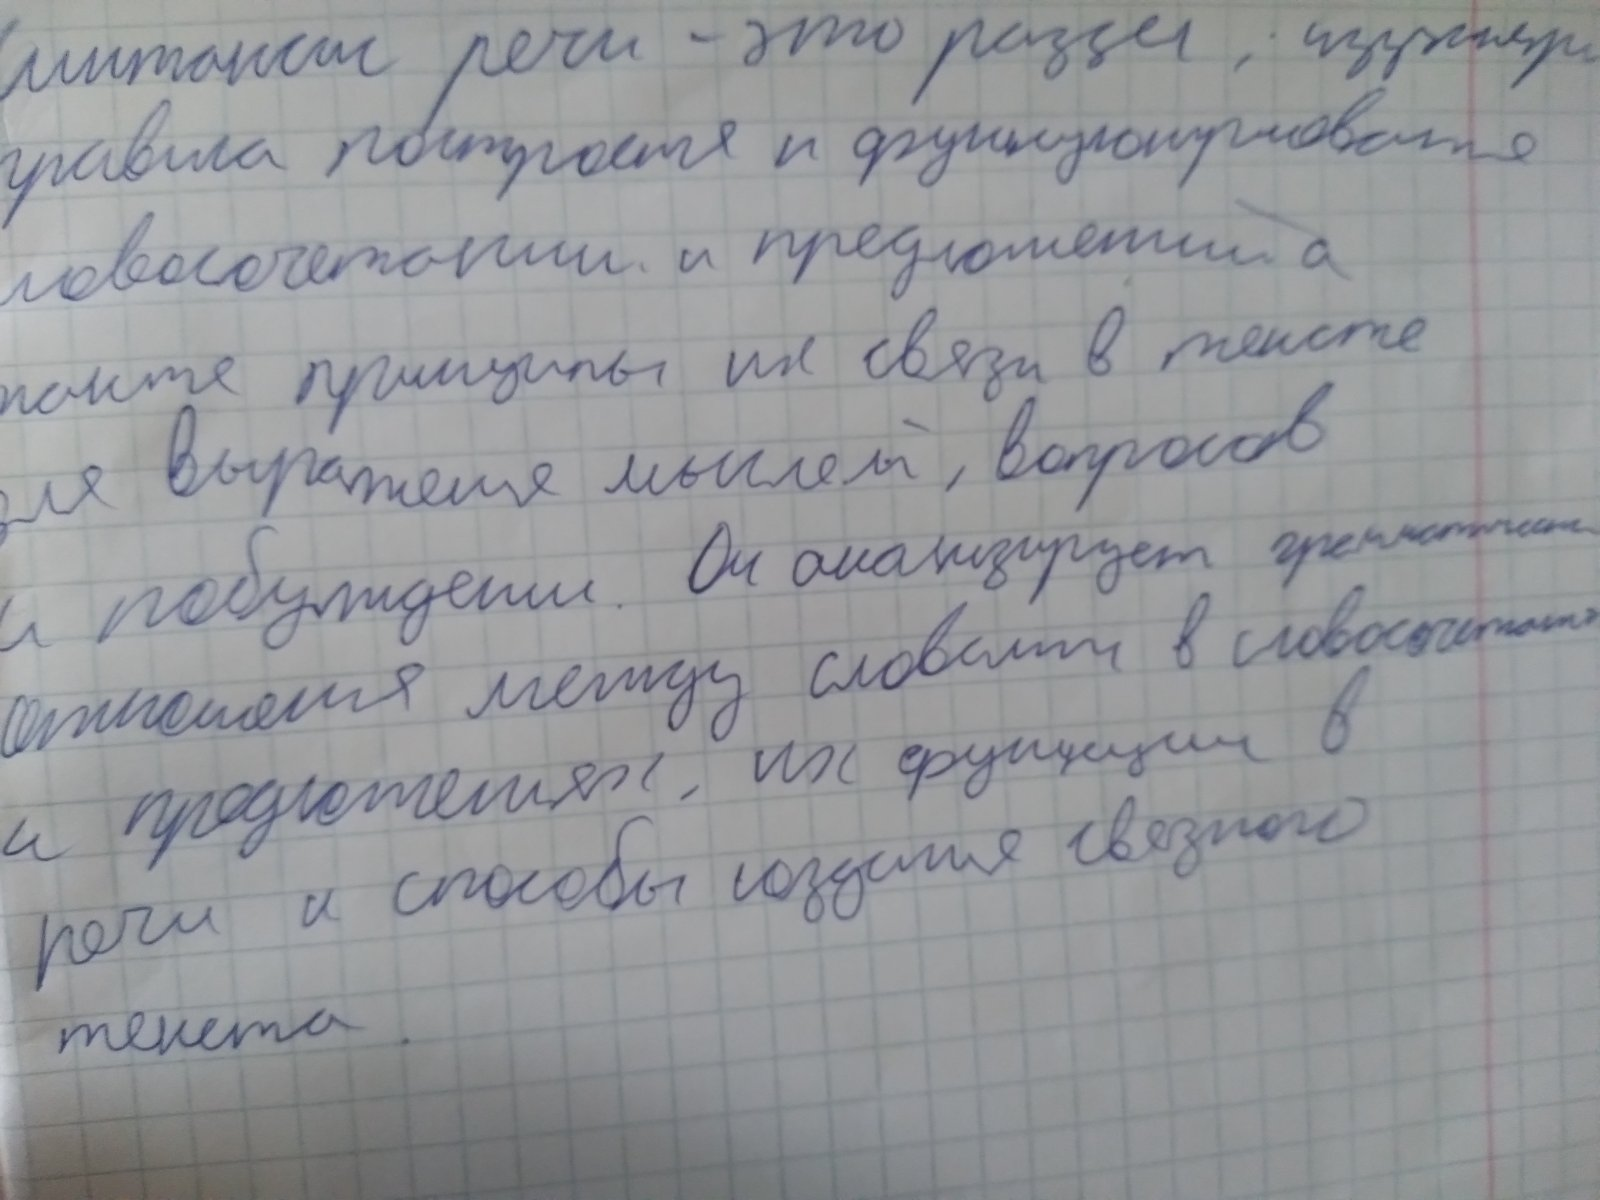 синтаксис речи - это раздел, изучающ
правила построения и функционирования
словосочетании и предложений а
также принципы их связи в тексте
для выражения мыслей, вопросов
и побуждении. Он анализирует грамматические
отношения между словами в словосочетаниях
и предложениях, их функции в
речи и способы создания связного
текста.